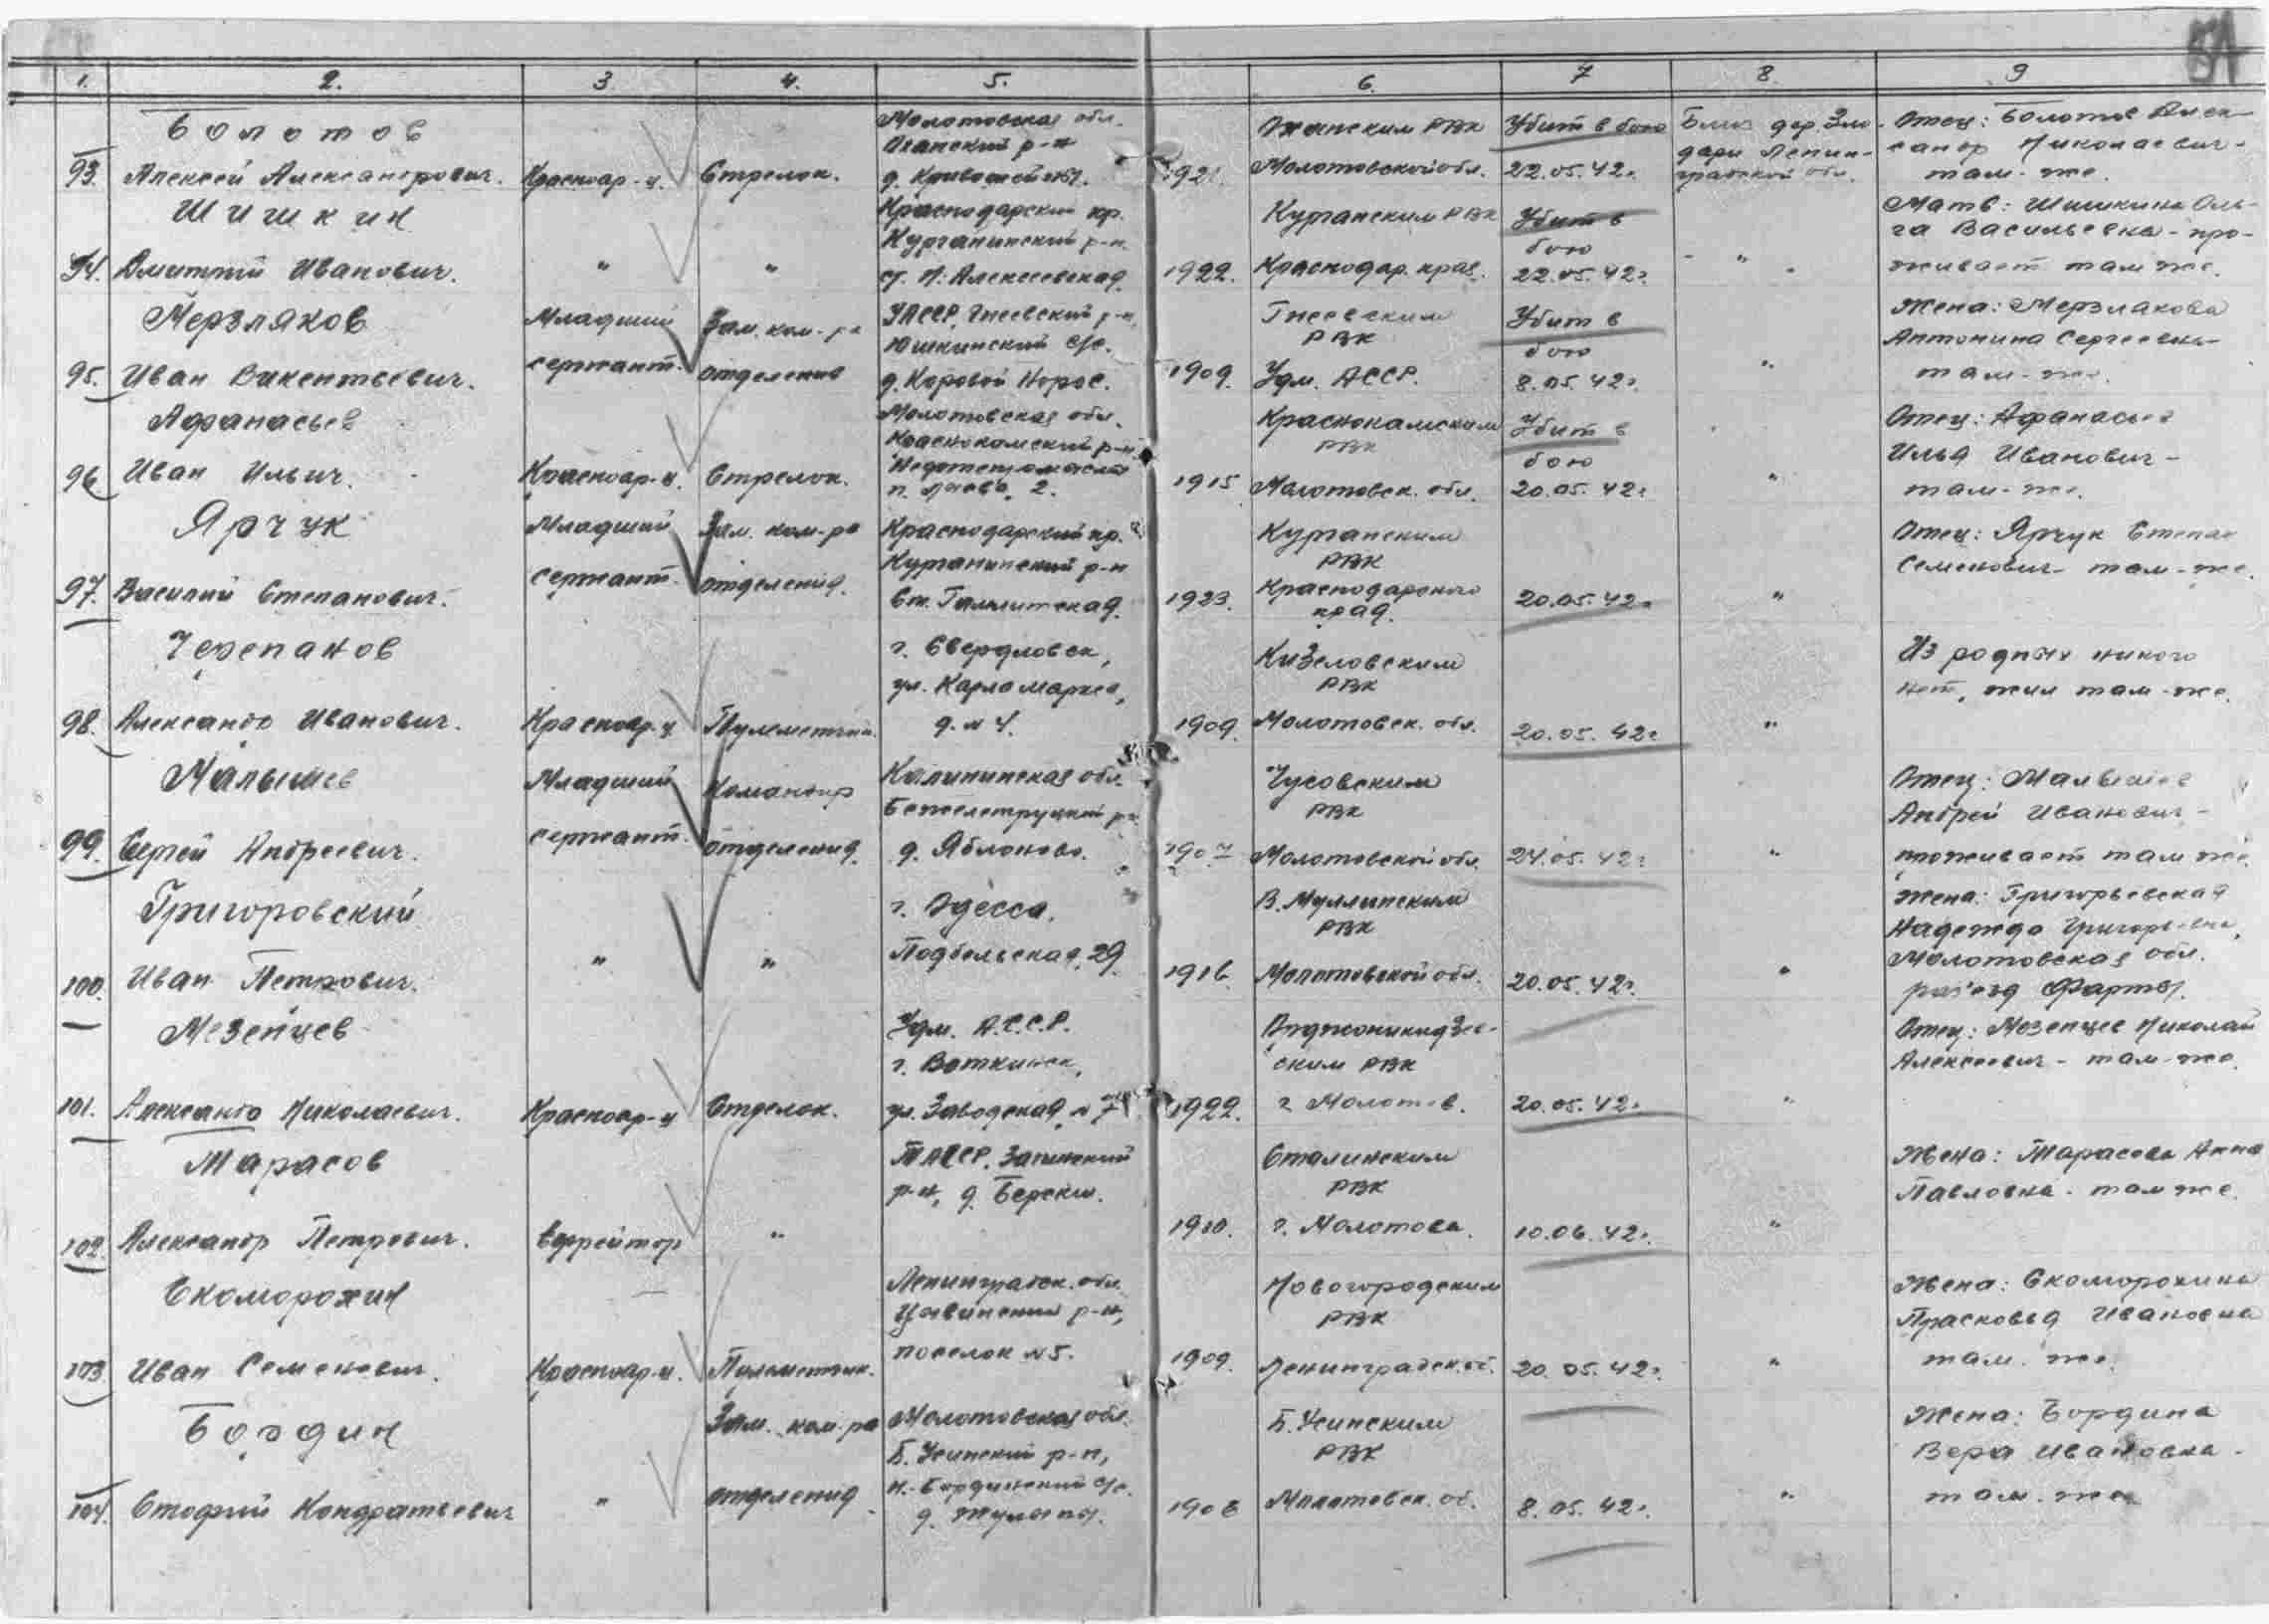 51
1. 2. 3 4. 5. 6. 7 8. 9
Болотов
93. Алексей Александрович. Красноар-ц. Стрелок.
Молотовская обл.
Оханский р-н
д.
1921. Оханским РВК
Молотовской обл.
Убит в бою
22.05.42г.
Близ дер.
Ленин-
градской обл.
Отец: Болотов Алек-
сандр Николаевич-
там-же.
Шишкин
94. Дмитрий Иванович. " "
Краснодарский кр.
Курганинский р-н.
ст. Н. Алексеевская.
1922. Курганским РВК
Краснодар. края.
Убит в
бою
22.05.42г.
- " -
Мать: Шишкина Оль-
га Васильевна - про-
живает там же.
Мерзляков
95. Иван Викентьевич.
Младший
сержант.
Зам. ком-ра
отделения
УАССР,
Юшкинский с/с.
д.
1909.
РВК
Удм. АССР.
Убит в
бою
8.05.42г.
"
Жена: Мерзлякова
Антонина Сергеевна-
там-же.
Афанасьев
96 Иван Ильич. Красноар-ц. Стрелок.
Молотовская обл.
Краснокамский р-н
п.
2.
1915 Краснокамским
РВК
Молотовск. обл.
Убит в
бою
20.05.42г
"
Отец: Афанасьев
Илья Иванович-
там-же.
Ярчук
97. Василий Степанович.
Младший
сержант.
Зам. ком-ра
отделения.
Краснодарский кр.
Курганинский р-н
ст.
1923. Курганским
РВК
Краснодарского
края.
20.05.42г.
"
Отец: Ярчук Степан
Семенович- там-же.
Черепанов
98. Александр Иванович. Красноар-ц Пулеметчик.
г. Свердловск,
ул. Карла Маркса,
д. № 4.
1909. Кизеловским
РВК
Молотовск. обл.
20.05.42г
"
Из родных никого
нет, жил там-же.
Малышев
99. Сергей Андреевич.
Младший
сержант.
Командир
отделения.
Калининская обл.
д. Яблоново.
1907 Чусовским
РВК
Молотовской обл.
24.05.42г
"
Отец: Малышев
Андрей Иванович-
проживает там же.
Григоровский
100. Иван Петрович. " "
г. Одесса.
Подбельская, 29.
1916. В. Муллинским
РВК
Молотовской обл.
20.05.42г.
"
Жена: Григорьевская
Надежда Григорьевна,
Молотовская обл.
раз'езд Фармы.
Мезенцев
101. Александр Николаевич. Красноар-ц Стрелок.
Удм. А.С.С.Р.
г. Воткинск,
ул. Заводская, № 7
1922. Орджоникидзев-
ским РВК
г. Молотов.
20.05.42г.
"
Отец: Мезенцев Николай
Алексеевич - там-же.
Тарасов
102. Александр Петрович. Ефрейтор "
ТАССР,
р-н, д.
1910. Сталинским
РВК
г. Молотова.
10.06.42г.
"
Жена: Тарасова Анна
Павловна - там же.
Скоморохин
103 Иван Семенович. Красноар-ц. Пулеметчик.
Ленинградск. обл.
р-н,
поселок № 5.
1909. Новогородским
РВК
Ленинградск. об.
20.05.42г.
"
Жена: Скоморохина
Прасковья Ивановна
там. же.
Бордин
104. Кондратьевич "
Зам. ком-ра
отделения
Молотовская обл.
Б. Усинский р-н,
с/с.
д.
1908 Б. Усинским
РВК
Молотовск. об.
8.05.42г.
"
Жена: Бордина
Вера Ивановна-
там. же.